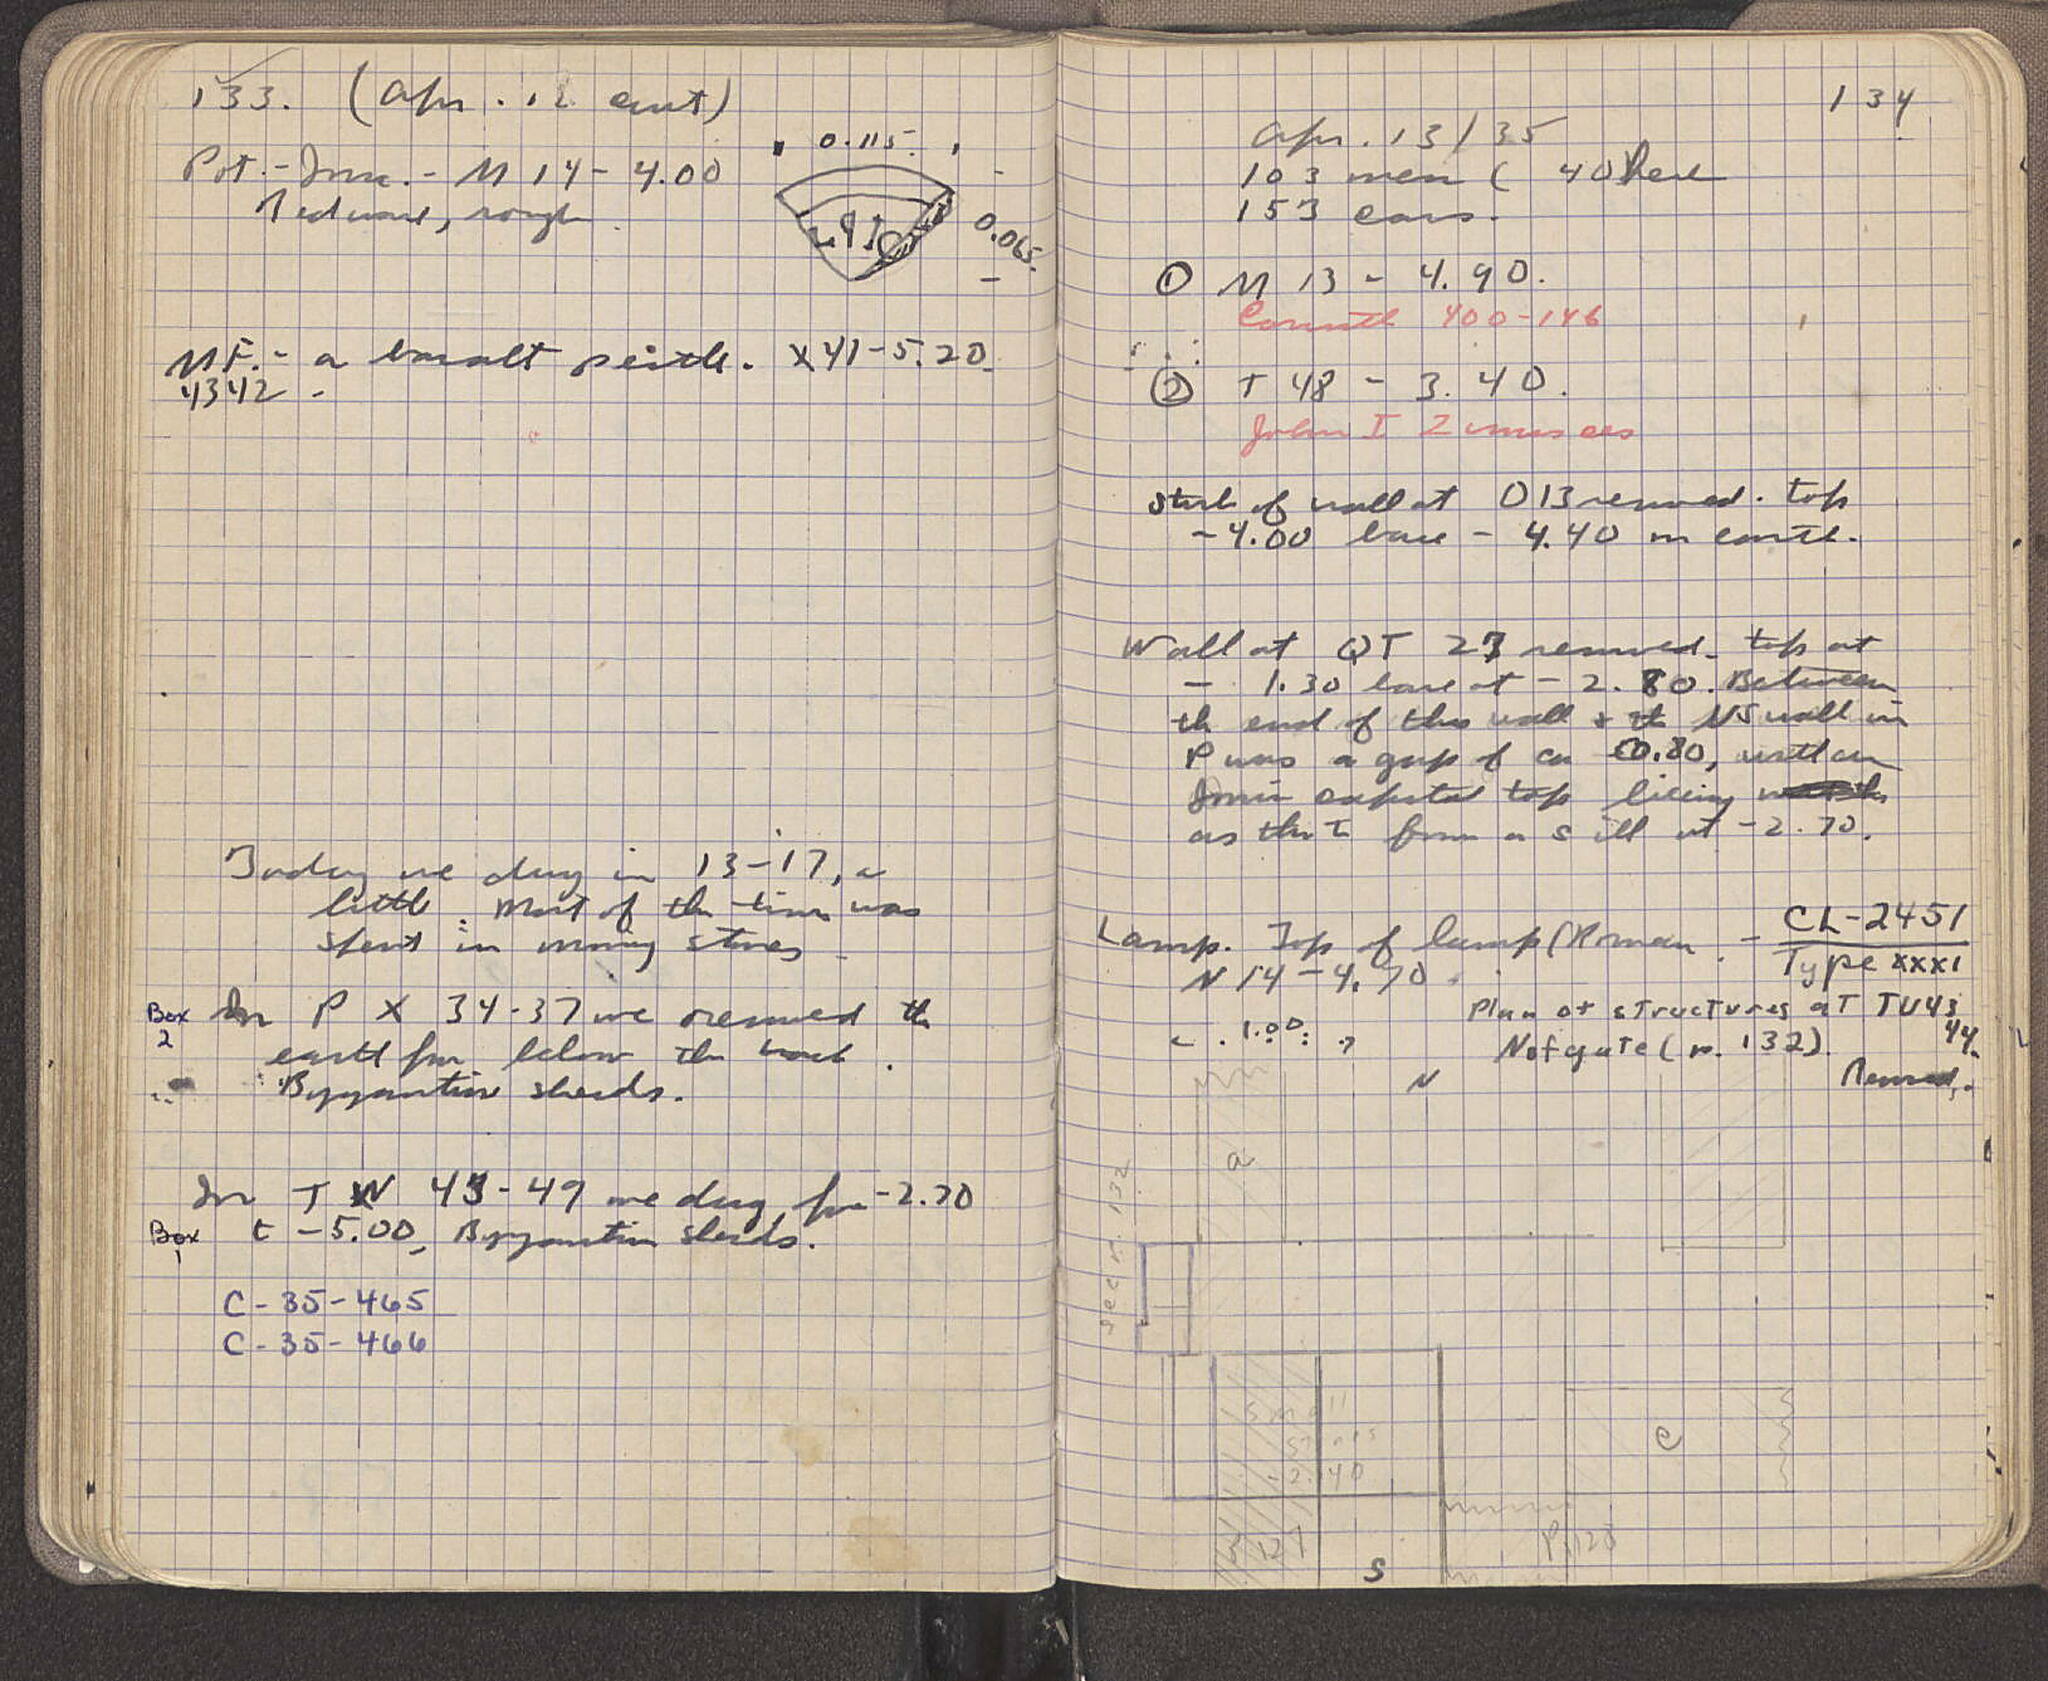 133. (Apr. 12 cont)
Pot.- Inn. - M 14 - 4.00
Red ware, rough.
0.115
0.065
MF. - a basalt pestle. X41 - 5.20
4342 -
Today we dug in 13-17, a
little. Most of the time was
spent in moving stones
Box 2
In P X 34-37 we removed the
earth far below the
Byzantine sherds.
In T W 45-49 we dug fr -2.70
Box 1
t -5.00, Byzantine sherds.
C-35-465
C-35-466
134
Apr. 13/35
103 men ( 40
153 cars.
① M 13 - 4.90.
Corinth 400-146
② T 48 - 3.40.
John I Zimisces
Stub of wall at O13 removed. top
-4.00 base - 4.40 in earth.
Wall at QT 23 removed. top at
- 1.30 base at - 2.80. Between
the end of this wall & the NS wall in
P was a gap of ca 0.80, with an
Ionic capital top
as tho from a sill at -2.70.
Lamp. Top of lamp (Roman. - CL-2451
Type XXXI
N 14 - 4.70
Plan of structures at TU43
44.
1.00
N of gate (p. 132).
N
Removed.
a
See p. 132
small
stones
-2.40
e
127
P. 128
S